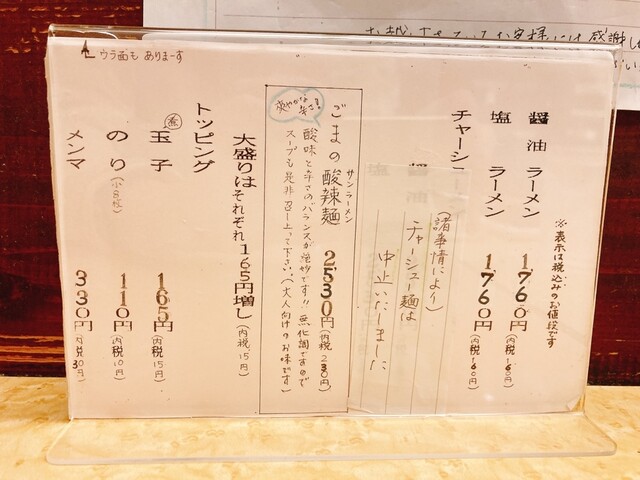 お越し下さっているお客様には感謝し
ウラ面も ありまーす
※表示は税込みのお値段です
醤油ラーメン 1760円(内税160円)
塩 ラーメン 1760円(内税160円)
チャーシュー
(諸事情により)
チャーシュー麺は
中止いたしました
爽やかな辛さ!
サンラーメン
ごまの酸辣麺 2530円(内税230円)
酸味と辛さのバランスが絶妙です!!無化調ですので
スープも是非召し上って下さい。(大人向けのお味です)
大盛りはそれぞれ165円増し(内税15円)
トッピング
煮玉子 165円(内税15円)
のり(小8枚) 110円(内税10円)
メンマ 330円(内税30円)